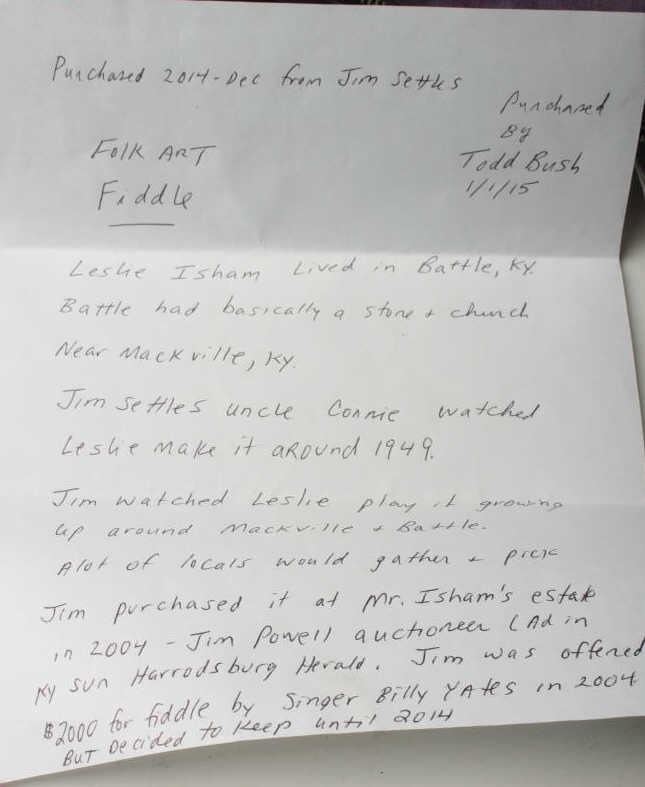 Purchased 2014-Dec from Jim Settles
Purchased
By
Todd Bush
1/1/15
Folk ART
Fiddle
Leslie Isham Lived in Battle, KY.
Battle had basically a store + church
Near Mackville, Ky.
Jim Settles uncle Connie watched
Leslie make it around 1949.
Jim watched Leslie play it growing
up around Mackville + Battle.
Alot of locals would gather + pick
Jim purchased it at Mr. Isham's estate
in 2004 - Jim Powell auctioneer (Ad in
KY Sun Harrodsburg Herald. Jim was offered
$2000 for fiddle by Singer Billy YAtes in 2004
BUT Decided to keep until 2014